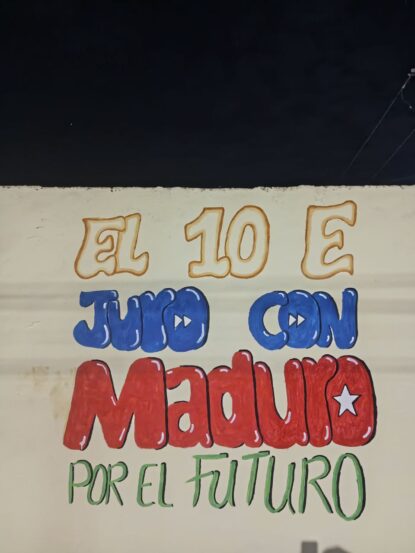 EL 10 E
JURO CON
Maduro
POR EL FUTURO